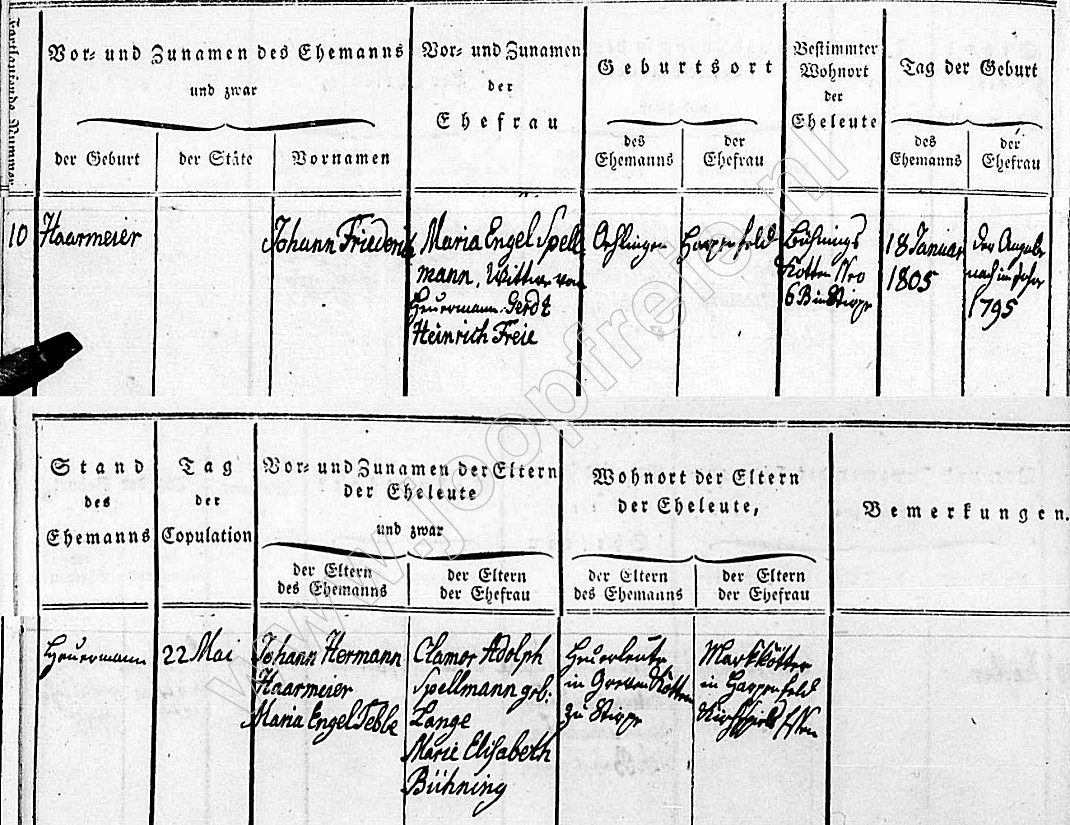 Fortlaufende Nummer
Vor- und Zunamen des Ehemanns
und zwar
der Geburt
der Stäte
Vornamen
Vor- und Zunamen
der
Ehefrau
Geburtsort
des
Ehemanns
der
Ehefrau
Bestimmter
Wohnort
der
Eheleute
Tag der Geburt
des
Ehemanns
der
Ehefrau
10
Haarmeier
Johann Friederich
Maria Engel Spell
mann, Wittwe von
Heuermann Gerdt
Heinrich Freie
Harpenfeld
Bühnings
Kotten Nro
6 B in
18 Januar
1805
der Angabe
nach im Jahr
1795
Stand
des
Ehemanns
Tag
der
Copulation
Vor- und Zunamen der Eltern
der Eheleute
und zwar
der Eltern
des Ehemanns
der Eltern
der Ehefrau
Wohnort der Eltern
der Eheleute,
der Eltern
des Ehemanns
der Eltern
der Ehefrau
Bemerkungen.
Heuermann
22 Mai
Johann Hermann
Haarmeier
Maria Engel Tebbe
Clamor Adolph
Spellmann geb:
Lange
Marie Elisabeth
Bühning
Heuerleute
in Kotten
zu
Markkötter
in Harpenfeld
Kirchspiel Essen
www.joopfreie.nl